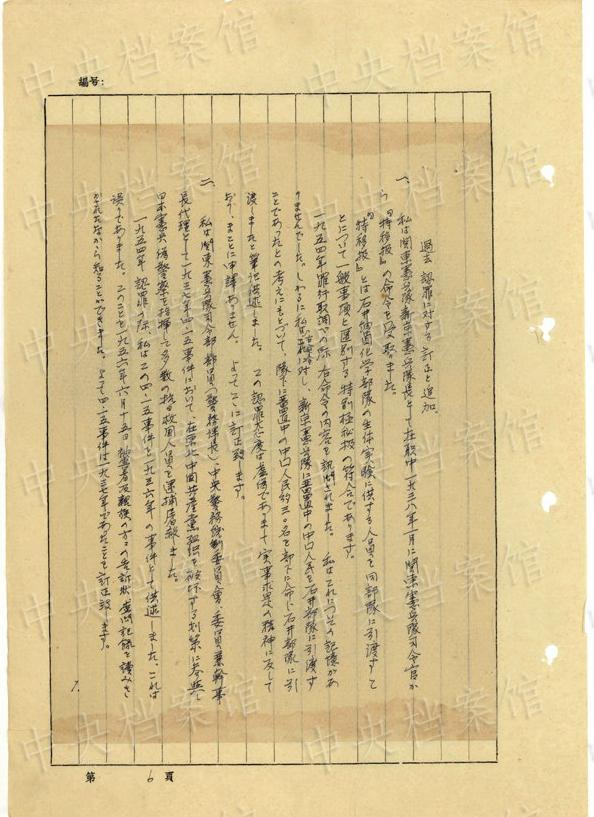 編号：
過去認罪に対する訂正と追加。
一、私は関東憲兵隊新京憲兵隊長として在職中一九三八年一月に関東憲兵隊司令官か
ら『特移扱』の命令を受取りました。
『特移扱』とは石井細菌化学部隊の生体実験に供する人員を同部隊に引渡すこ
とについて一般事項と区別する特別極秘扱の符合であります。
一九五四年罪行取調べの際右命令の内容を訊問されました。私はこれについての記憶があ
りませんでした。しかるに私は 対し、新京憲兵隊に留置中の中国人民を石井部隊に引渡す
ことであったとの考えにもとづいて、隊下に留置中の中国人民約三〇名を部下に命じ石井部隊に引
渡しましたと筆供述しました。この認罪態度は虚偽でありまして実事求是の精神に反して
おり、まことに申譯ありません。よってここに訂正致します。
二、私は関東憲兵隊司令部部員（警務課長）、中央警務統制委員会、委員兼幹事
長代理として一九三七年四・一五事件において、在満北中国共産党組織を破坏する判策に参与し
日本憲兵隊警察を指揮して多数の抗日救国人員を逮捕屠殺しました。
一九五四年認罪の際、私はこの四・一五事件を一九三六年の事件として供述しました。これは
誤りでありました。このことを一九五六年六月十五日被害者及親族の方々の告訴状、査問記録を読みき
かされたことから知ることができました。よって四・一五事件は一九三七年であったことを訂正致します。
7.
第 6 頁
中央档案馆